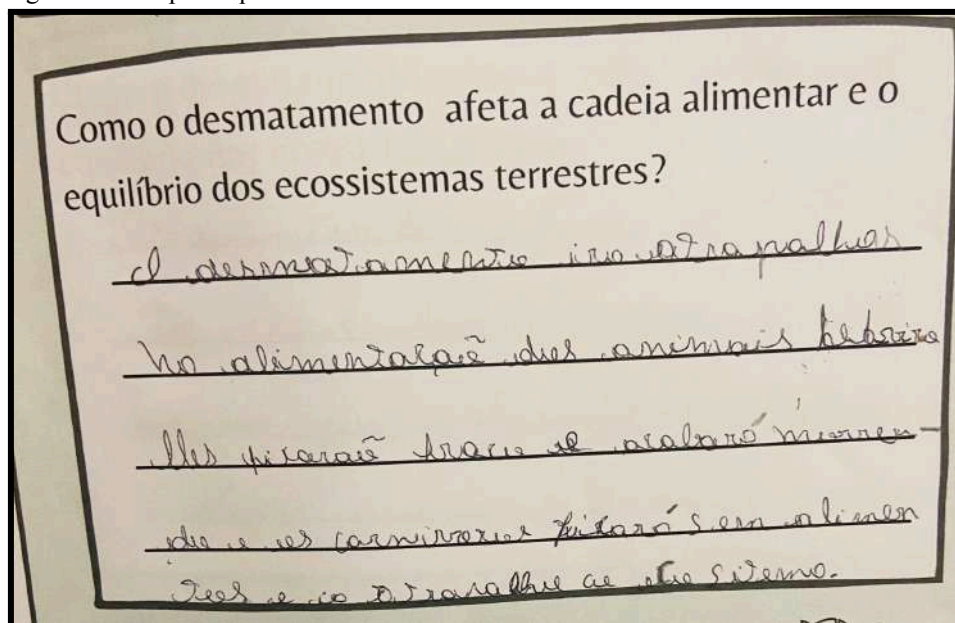 Como o desmatamento afeta a cadeia alimentar e o
equilíbrio dos ecossistemas terrestres?
O desmatamento ira atrapalhar
na alimentaçaõ dos animais
Eles ficaraõ fraco e acabará morren-
do e os carnivoros ficará sem alimen
tos e o atrapalhe